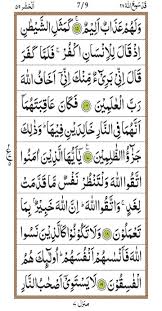 قد سمع الله ٢٨ 7/9 الحشر ٥٩
وَلَهُمْ عَذَابٌ اَلِيْمٌ ۝ كَمَثَلِ الشَّيْطٰنِ
اِذْ قَالَ لِلْاِنْسَانِ اكْفُرْ ۚ فَلَمَّا كَفَرَ
قَالَ اِنِّيْ بَرِيْٓءٌ مِّنْكَ اِنِّيْٓ اَخَافُ اللّٰهَ
رَبَّ الْعٰلَمِيْنَ ۝ فَكَانَ عَاقِبَتَهُمَآ
اَنَّهُمَا فِي النَّارِ خَالِدَيْنِ فِيْهَا ۚ وَذٰلِكَ
جَزٰٓؤُا الظّٰلِمِيْنَ ۝ يٰٓاَيُّهَا الَّذِيْنَ اٰمَنُوا
اتَّقُوا اللّٰهَ وَلْتَنْظُرْ نَفْسٌ مَّا قَدَّمَتْ
لِغَدٍ ۚ وَاتَّقُوا اللّٰهَ ۚ اِنَّ اللّٰهَ خَبِيْرٌۢ بِمَا
تَعْمَلُوْنَ ۝ وَلَا تَكُوْنُوْا كَالَّذِيْنَ نَسُوا
اللّٰهَ فَاَنْسٰهُمْ اَنْفُسَهُمْ ۚ اُولٰٓئِكَ هُمُ
الْفٰسِقُوْنَ ۝ لَا يَسْتَوِيْٓ اَصْحٰبُ النَّارِ
منزل ٧